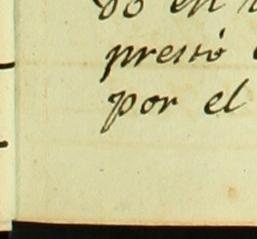 do en
prestó
por el